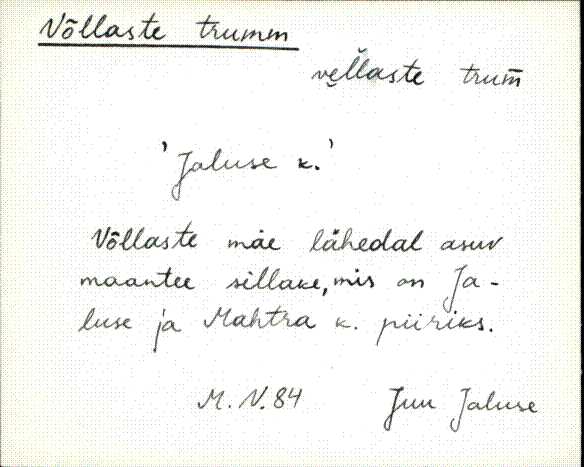 Võllaste trumm
vẹl̆laste trum̄
'Jaluse k.'
Võllaste mäe lähedal asuv
maantee sillake, mis on Ja-
luse ja Mahtra k. piiriks.
M. N. 84 Juu Jaluse